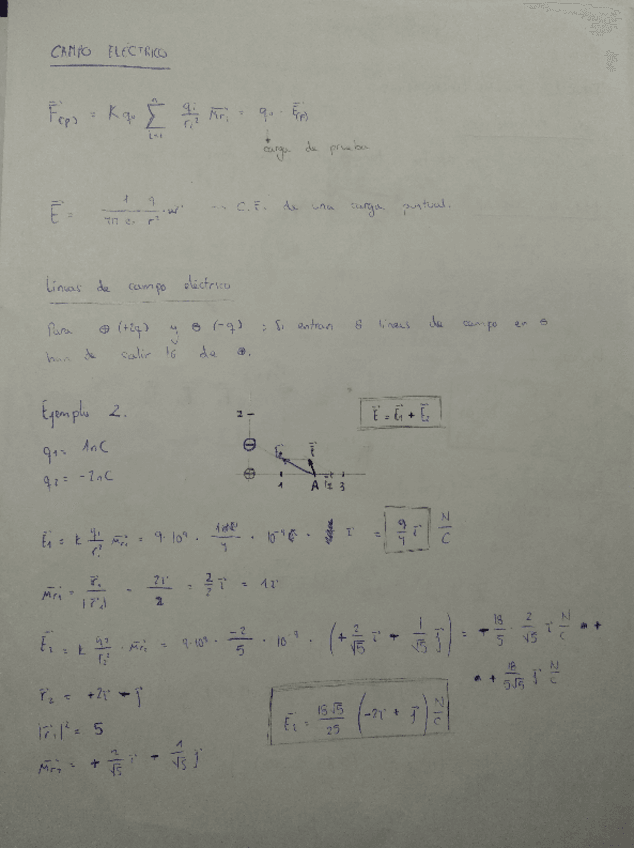 CAMPO ELÉCTRICO
F⃗(p) = K q₀ Σⁿᵢ₌₁ qᵢ/rᵢ² μ⃗rᵢ = q₀ · E⃗(p)
carga de prueba
E⃗ = 1/4πε₀ q/r² · → C.E. de una carga puntual.
Líneas de campo eléctrico
Para ⊕ (+2q) y ⊖ (-q) : Si entran 8 líneas de campo en ⊖
han de salir 16 de ⊕.
Ejemplo 2.
2
E⃗ = E⃗₁ + E⃗₂
q₁ = 1nC
q₂ = -2nC
⊖
⊕
E⃗
1 A 2 3
E⃗₁ = K q₁/r₁² μ⃗r₁ = 9·10⁹ · /4 · 10⁻⁹ · i⃗ = 9/4 i⃗ N/C
μ⃗r₁ = r⃗₁/|r⃗₁| = 2i⃗/2 = 2/2 i⃗ = 1i⃗
E⃗₂ = K q₂/r₂² · μ⃗r₂ = 9·10⁹ · -2/5 · 10⁻⁹ · (+ 2/√5 i⃗ - 1/√5 j⃗) = - 18/5 · 2/√5 i⃗ N/C +
+ 18/5√5 j⃗ N/C
r⃗₂ = +2i⃗ - j⃗
|r⃗₂|² = 5
E⃗₂ = 18√5/25 (-2i⃗ + j⃗) N/C
μ⃗r₂ = + 2/√5 i⃗ - 1/√5 j⃗